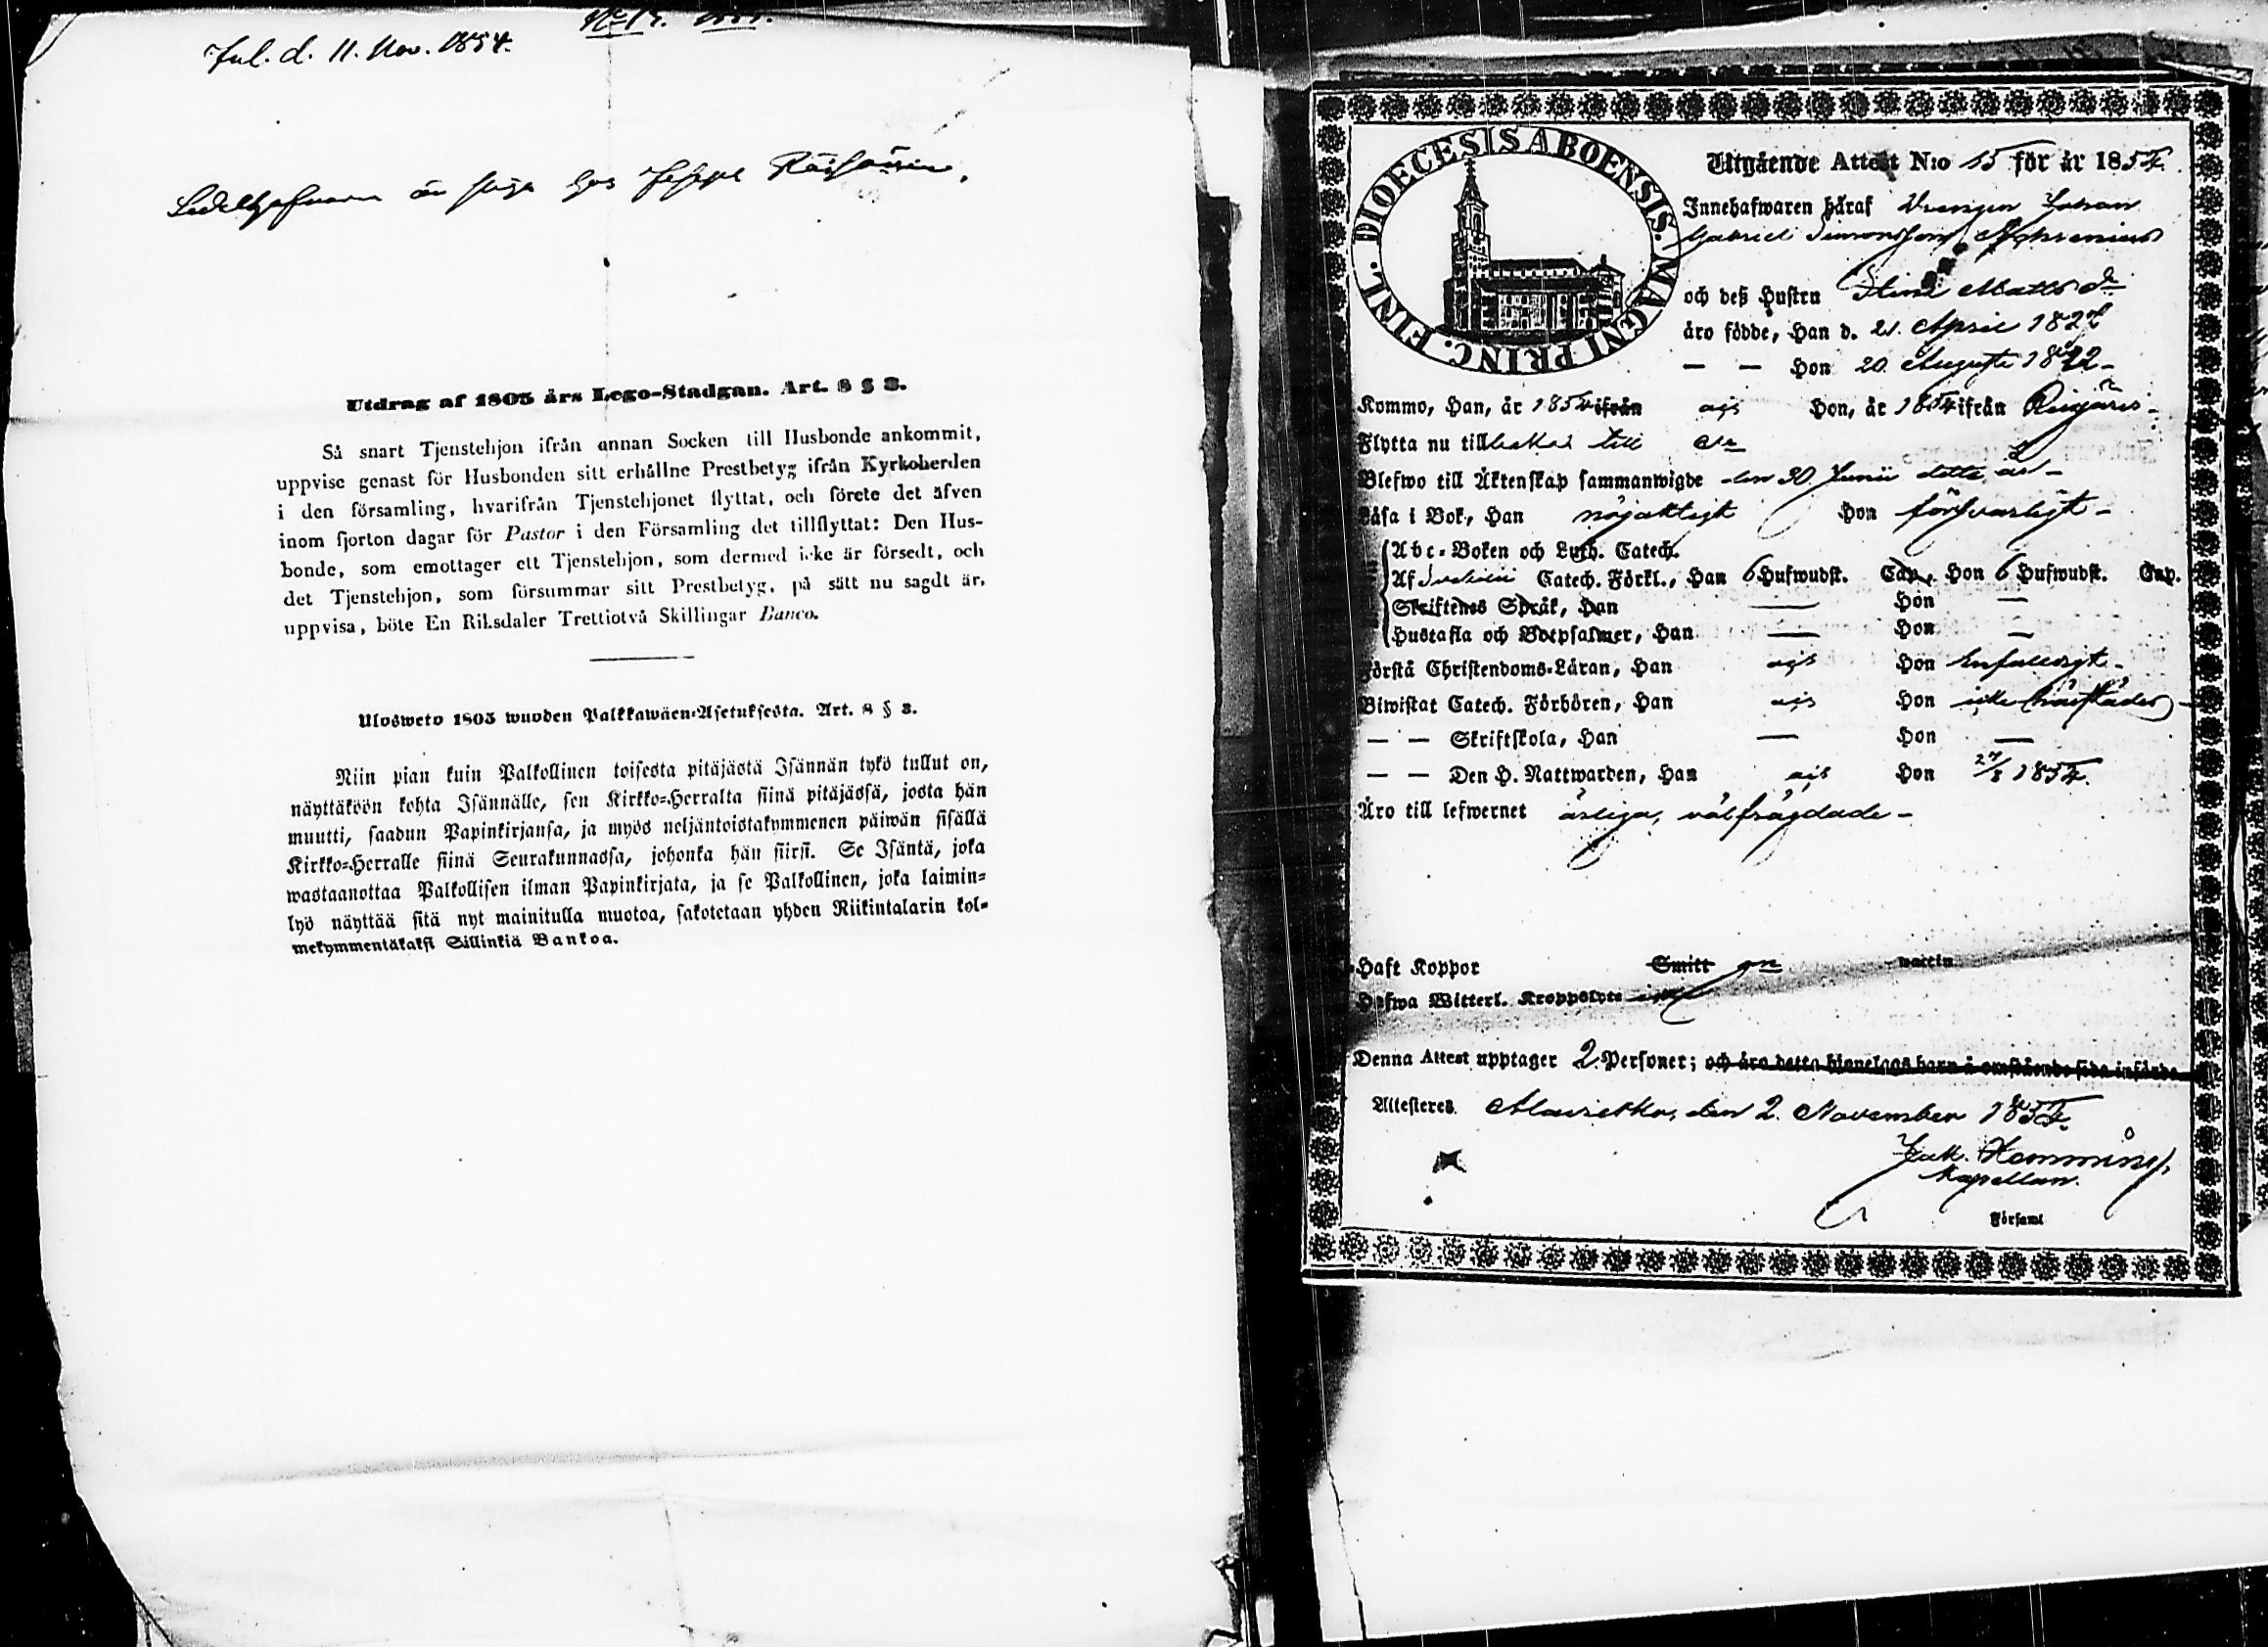 Inl. d. 11. Nov. 1854.
Sedelhafvaren är piga hos Jeppe
Utdrag af 1805 års Lego-Stadgan. Art. 8 § 3.
Så snart Tjenstehjon ifrån annan Socken till Husbonde ankommit,
uppvise genast för Husbonden sitt erhållne Prestbetyg ifrån Kyrkoherden
i den församling, hvarifrån Tjenstehjonet flyttat, och förete det äfven
inom fjorton dagar för Pastor i den Församling det tillflyttat: Den Hus-
bonde, som emottager ett Tjenstehjon, som dermed icke är försedt, och
det Tjenstehjon, som försummar sitt Prestbetyg, på sätt nu sagdt är,
uppvisa, böte En Riksdaler Trettiotvå Skillingar Banco.
Ulosweto 1805 wuoden Palkkawäen-Asetuksesta. Art. 8 § 3.
Niin pian kuin Palkollinen toisesta pitäjästä Isännän tykö tullut on,
näyttäköön kohta Isännälle, sen Kirkko-Herralta siinä pitäjässä, josta hän
muutti, saadun Papinkirjansa, ja myös neljäntoistakymmenen päiwän sisällä
Kirkko-Herralle siinä Seurakunnassa, johonka hän siirsi. Se Isäntä, joka
wastaanottaa Palkollisen ilman Papinkirjata, ja se Palkollinen, joka laimin-
lyö näyttää sitä nyt mainitulla muotoa, sakotetaan yhden Riikintalarin kol-
mekymmentäkaksi Sillinkiä Bankoa.
DIOECESIS ABOENSIS. MAGNI PRINC. FINL.
Utgående Attest N:o 15 för år 1854.
Innehafwaren häraf Drengen Johan
Gabriel Simonsson
och deß Hustru Stina Matts dr
äro födde, Han d. 21. April 182
— — Hon 20 Augusti 1822 -
Kommo, Han, år 1854 ifrån ejs Hon, år 1854 ifrån
Flytta nu tillbaka till
Blefwo till Äktenskap sammanwigde den 30 Junii detta år -
Läsa i Bok, Han nöjaktigt Hon försvarligt -
Abc-Boken och Luth. Catech.
Af Svebilii Catech. Förkl., Han 6 Hufwudst. Cap. Hon 6 Hufwudst. Cap.
Skriftenes Språk, Han — Hon —
Hustafla och Botpsalmer, Han — Hon —
Förstå Christendoms-Läran, Han ejs Hon enfaldigt -
Biwistat Catech. Förhören, Han ejs Hon icke härstädes -
— — Skriftskola, Han — Hon —
— — Den H. Nattwarden, Han ejs Hon 27/8 1854.
Äro till lefwernet ärliga, välfrägdade -
Haft Koppor Smitt
Hafwa Witterl. Kroppslyte
Denna Attest upptager 2 Personer; och äro detta hjonelags barn å omstående sida införde
Attesteres. den 2. November 1854.
Hemming,
Kapellan.
Församl